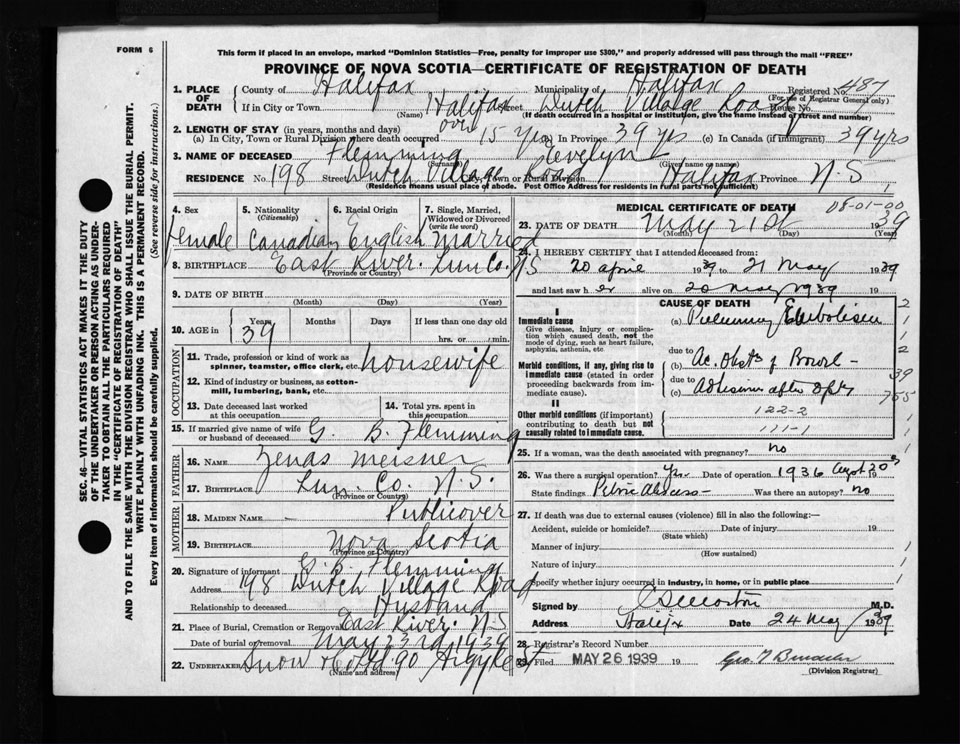 FORM 6
This form if placed in an envelope, marked "Dominion Statistics—Free, penalty for improper use $300," and properly addressed will pass through the mail "FREE"
PROVINCE OF NOVA SCOTIA—CERTIFICATE OF REGISTRATION OF DEATH
1. PLACE OF DEATH County of Halifax Municipality of Halifax Registered No. 487
(For use of Registrar General only)
If in City or Town Halifax Street Dutch Village Road House No.
(Name) (If death occurred in a hospital or institution, give the name instead of street and number)
2. LENGTH OF STAY (in years, months and days)
(a) In City, Town or Rural Division where death occurred over 15 yrs (b) In Province 39 yrs (c) In Canada (if immigrant) 39 yrs
3. NAME OF DECEASED Flemming Evelyn
(Surname) (Given name or names)
RESIDENCE No. 198 Street Dutch Village Road City, Town or Rural Division Halifax Province N.S.
(Residence means usual place of abode. Post Office Address for residents in rural parts not sufficient)
4. Sex Female
5. Nationality (Citizenship) Canadian
6. Racial Origin English
7. Single, Married, Widowed or Divorced (write the word) Married
8. BIRTHPLACE East River. Lun Co. N S
(Province or Country)
9. DATE OF BIRTH
(Month) (Day) (Year)
10. AGE in Years 39 Months Days If less than one day old
hrs. or min.
OCCUPATION
11. Trade, profession or kind of work as spinner, teamster, office clerk, etc. housewife
12. Kind of industry or business, as cotton-mill, lumbering, bank, etc.
13. Date deceased last worked at this occupation
14. Total yrs. spent in this occupation
15. If married give name of wife or husband of deceased G. B. Flemming
FATHER
16. NAME Zenas Meisner
17. BIRTHPLACE Lun. Co. N.S.
(Province or Country)
MOTHER
18. MAIDEN NAME Publicover
19. BIRTHPLACE Nova Scotia
(Province or Country)
20. Signature of informant G. B. Flemming
Address 198 Dutch Village Road
Relationship to deceased Husband
21. Place of Burial, Cremation or Removal East River. N.S
Date of burial or removal May 23rd, 1939
22. UNDERTAKER Snow & Co Ltd 90 Argyle St
(Name and address)
MEDICAL CERTIFICATE OF DEATH 08-01-00
23. DATE OF DEATH May 21st 1939
(Month) (Day) (Year)
24. I HEREBY CERTIFY that I attended deceased from:
20 april 1939 to 21 May 1939
and last saw her alive on 20 May 1939 19
CAUSE OF DEATH
I
Immediate cause
Give disease, injury or complication which caused death, not the mode of dying, such as heart failure, asphyxia, asthenia, etc
(a)
due to
Morbid conditions, if any, giving rise to immediate cause (stated in order proceeding backwards from immediate cause).
(b) Ac. Obst. of Bowel
due to
(c) Adhesions after
II
Other morbid conditions (if important) contributing to death but not causally related to immediate cause.
122-2
111-1
25. If a woman, was the death associated with pregnancy? no
26. Was there a surgical operation? Yes Date of operation 1936
State findings Pelvic Abscess Was there an autopsy? no
27. If death was due to external causes (violence) fill in also the following:—
Accident, suicide or homicide? Date of injury 19
(State which)
Manner of injury
(How sustained)
Nature of injury
Specify whether injury occurred in industry, in home, or in public place
Signed by M.D.
Address Halifx Date 24 May 1939
28. Registrar's Record Number
29. Filed MAY 26 1939 19
(Division Registrar)
SEC. 46—VITAL STATISTICS ACT MAKES IT THE DUTY
OF THE UNDERTAKER OR PERSON ACTING AS UNDERTAKER TO OBTAIN ALL THE PARTICULARS REQUIRED
IN THE "CERTIFICATE OF REGISTRATION OF DEATH"
AND TO FILE THE SAME WITH THE DIVISION REGISTRAR WHO SHALL ISSUE THE BURIAL PERMIT.
WRITE PLAINLY WITH UNFADING INK. THIS IS A PERMANENT RECORD.
Every item of information should be carefully supplied. (See reverse side for instructions.)